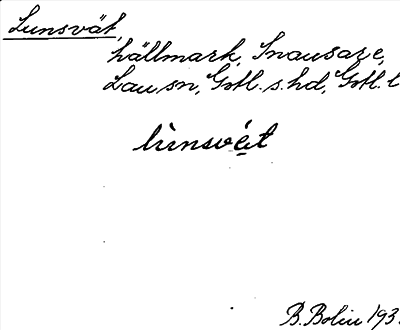 Lunsvät,
hällmark, Snausarve,
Lau sn, Gotl. s. hd, Gotl. l
lùnsvét
B. Bolin 193